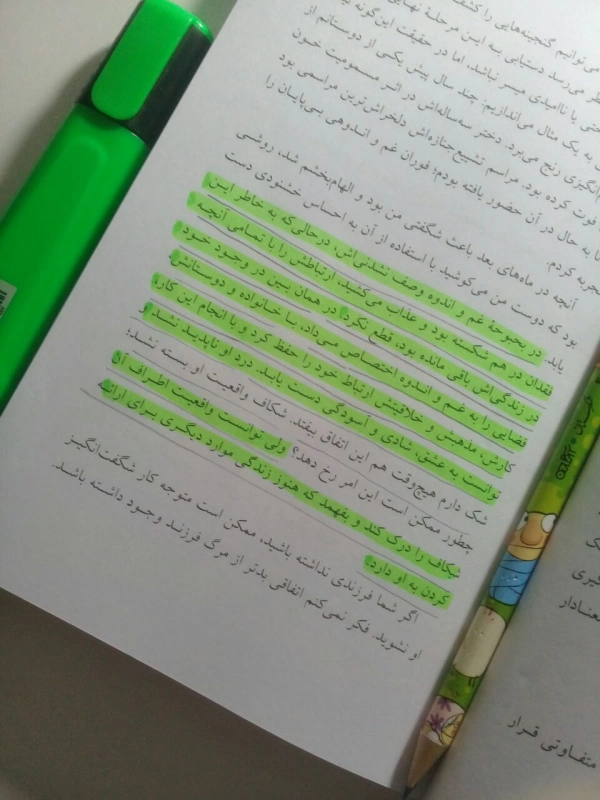 می‌توانیم گنجینه‌هایی را کشف
نظر می‌رسد دستیابی به این مرحلهٔ نهایی
حتی یا ناامیدی میسر نباشد، اما در حقیقت این‌گونه
به یک مثال می‌اندازیم: چند سال پیش یکی از دوستانم از
انگیزی رنج می‌برد. دختر سه‌ساله‌اش در اثر مسمومیت خون
فوت کرده بود. مراسم تشییع جنازه‌اش دلخراش‌ترین مراسمی بود
تا به حال در آن حضور یافته بودم؛ فوران غم و اندوهی بی‌پایان را
تجربه کردم.
آنچه در ماه‌های بعد باعث شگفتی من بود و الهام‌بخشم شد، روشی
بود که دوست من می‌کوشید با استفاده از آن به احساس خشنودی دست
یابد. در بحبوحهٔ غم و اندوه وصف نشدنی‌اش، درحالی‌که به خاطر این
فقدان در هم شکسته بود و عذاب می‌کشید، ارتباطش را با تمامی آنچه
در زندگی‌اش باقی مانده بود، قطع نکرد. در همان بین در وجود خود
فضایی را به غم و اندوه اختصاص می‌داد، با خانواده و دوستانش،
کارش، مذهبش و خلاقیتش ارتباط خود را حفظ کرد و با انجام این کار،
توانست به عشق، شادی و آسودگی دست یابد. درد او ناپدید نشد و
شک دارم هیچ‌وقت هم این اتفاق بیفتد. شکاف واقعیت او بسته نشد؛
چطور ممکن است این امر رخ دهد؟ ولی توانست واقعیت اطراف آن
شکاف را درک کند و بفهمد که هنوز زندگی موارد دیگری برای ارائه
کردن به او دارد.
اگر شما فرزندی نداشته باشید، ممکن است متوجه کار شگفت‌انگیز
او نشوید. فکر نمی‌کنم اتفاقی بدتر از مرگ فرزند وجود داشته باشد.
متفاوتی قرار